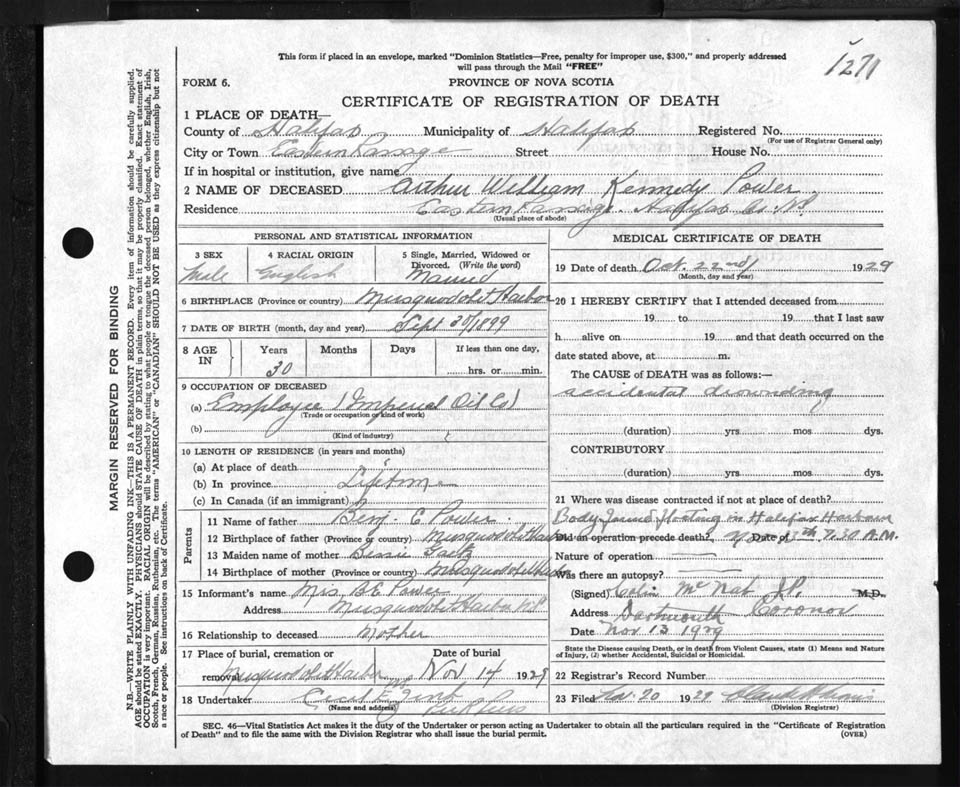 This form if placed in an envelope, marked "Dominion Statistics—Free, penalty for improper use, $300," and properly addressed
will pass through the Mail "FREE"
1271
FORM 6.
PROVINCE OF NOVA SCOTIA
CERTIFICATE OF REGISTRATION OF DEATH
1 PLACE OF DEATH—
County of Halifax Municipality of Halifax Registered No.
(For use of Registrar General only)
City or Town Eastern Passage Street House No.
If in hospital or institution, give name
2 NAME OF DECEASED Arthur William Kennedy Power
Residence Eastern Passage. Halifax Co. NS
(Usual place of abode)
PERSONAL AND STATISTICAL INFORMATION
3 SEX 4 RACIAL ORIGIN 5 Single, Married, Widowed or
Divorced. (Write the word)
Male English Married
6 BIRTHPLACE (Province or country) Musquodoboit Harbor
7 DATE OF BIRTH (month, day and year) Sept 30/1899
8 AGE IN Years Months Days If less than one day,
30 hrs. or min.
9 OCCUPATION OF DECEASED
(a) Employee (Imperial Oil Co)
(Trade or occupation or kind of work)
(b)
(Kind of industry)
10 LENGTH OF RESIDENCE (in years and months)
(a) At place of death
(b) In province Lifetime
(c) In Canada (if an immigrant)
Parents
11 Name of father Benj. E Power
12 Birthplace of father (Province or country) Musquodoboit Harbor
13 Maiden name of mother Bessie
14 Birthplace of mother (Province or country) Musquodoboit Harbor
15 Informant's name Mrs. B E Power
Address Musquodoboit Harbor NS
16 Relationship to deceased Mother
17 Place of burial, cremation or Date of burial
removal Musquodoboit Harbor Nov 14 1929
18 Undertaker Cecil E Zink
(Name and address)
MEDICAL CERTIFICATE OF DEATH
19 Date of death Oct. 22nd 1929
(Month, day and year)
20 I HEREBY CERTIFY that I attended deceased from
19 to 19 that I last saw
h alive on 19 and that death occurred on the
date stated above, at m.
The CAUSE of DEATH was as follows:—
accidental drowning
(duration) yrs mos dys.
CONTRIBUTORY
(duration) yrs mos dys.
21 Where was disease contracted if not at place of death?
Body found floating in Halifax Harbour
Did an operation precede death? Date of 7.30 A.M.
Nature of operation
Was there an autopsy?
(Signed) Colin McNab J.P. M.D.
Address Dartmouth Coroner
Date Nov 13 1929
State the Disease causing Death, or in death from Violent Causes, state (1) Means and Nature
of Injury, (2) whether Accidental, Suicidal or Homicidal.
22 Registrar's Record Number
23 Filed Nov. 20 1929
(Division Registrar)
SEC. 46—Vital Statistics Act makes it the duty of the Undertaker or person acting as Undertaker to obtain all the particulars required in the "Certificate of Registration
of Death" and to file the same with the Division Registrar who shall issue the burial permit.
(OVER)
MARGIN RESERVED FOR BINDING
N.B.—WRITE PLAINLY WITH UNFADING INK—THIS IS A PERMANENT RECORD. Every item of information should be carefully supplied.
AGE should be stated EXACTLY. PHYSICIANS should STATE CAUSE OF DEATH in plain terms, so that it may be properly classified. Exact statement of
OCCUPATION is very important. RACIAL ORIGIN will be described by stating to what people or tongue the deceased person belonged, whether English, Irish,
Scotch, French, German, Russian, Ruthenian, etc. The terms "AMERICAN" or "CANADIAN" SHOULD NOT BE USED as they express citizenship but not
a race or people. See instructions on back of Certificate.